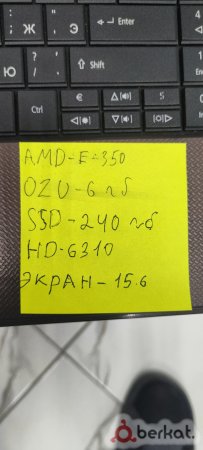 : Ж
" Э
← Enter
Ю
? /
⇧ Shift
Ctrl
€
$
AMD-E-350
OZU-6 гб
SSD-240 гб
HD-6310
ЭКРАН-15.6
berkat.